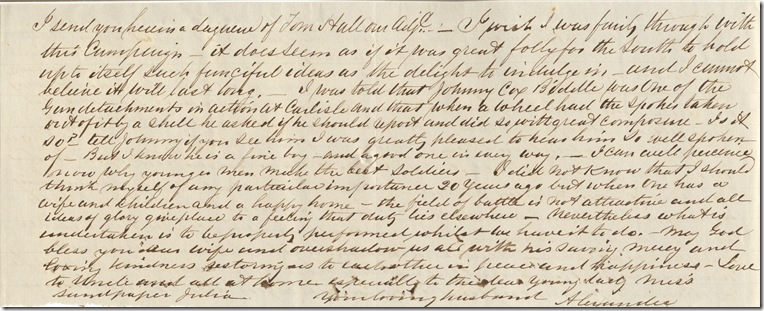 I send you herein a daguerre of Tom Hall our Adjt. — I wish I was fairly through with
this Campaign — it does seem as if it was great folly for the South to hold
up to itself such fanciful ideas as the delight to indulge in — and I cannot
believe it will last long. — I was told that Johnny Cox Biddle was one of the
Gun detachments in action at Carlisle and that when a wheel had the spokes taken
out of it by a shell he asked if he should report and did so with great composure — Is it
so? tell Johnny if you see him I was greatly pleased to hear him so well spoken
of — But I know he is a fine boy — and a good one in every way. — I can well perceive
now why younger men make the best soldiers — I did not know that I should
think myself of any particular importance 20 years ago but when one has a
wife and children and a happy home — the field of battle is not attractive and all
ideas of glory give place to a feeling that duty lies elsewhere — Nevertheless what is
undertaken is to be properly performed whilst we have it to do. — May God
bless you dear wife and overshadow us all with his saving mercy and
loving kindness restoring us to each other in peace and happiness — Love
to Uncle and all at home especially to the dear young lady Miss
Sandpaper Julia Your loving husband Alexander